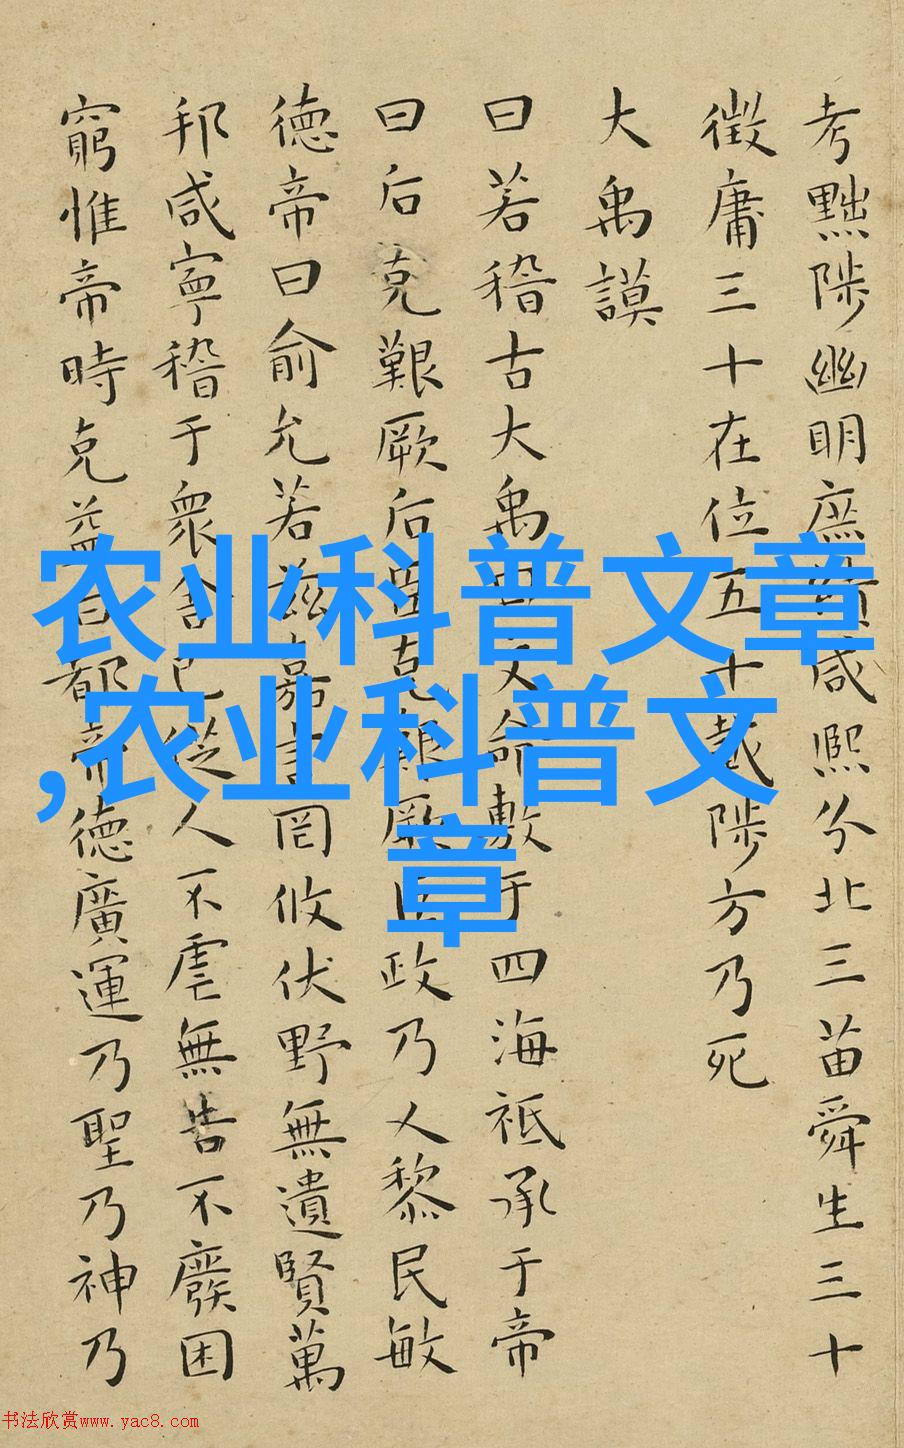 考黜陟幽明庶績咸熙分北三苗舜生三十
徵庸三十在位五十載陟方乃死
大禹謨
曰若稽古大禹曰文命敷于四海祗承于帝
曰后克艱厥后臣克艱厥臣政乃乂黎民敏
德帝曰俞允若茲嘉言罔攸伏野無遺賢萬
邦咸寧稽于衆舍己從人不虐無告不廢困
窮惟帝時克益曰都帝德廣運乃聖乃神乃
农业科普文章
,农业科普文
章
书法欣赏www.yac8.com